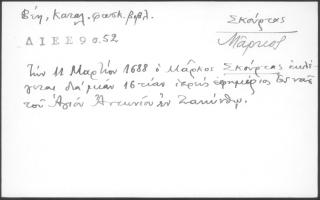 Βέη, Καταλ. φασκ. βιβλ.
Σκούρτας
Μάρκος
ΔΙΕΕ 9ος. 52
Τήν 11 Μαρτίου 1688 ὁ Μάρκος Σκούρτας ἐκλέ
γεται διά μίαν 16τίαν ἱερεύς ἐφημέριος τοῦ ναοῦ
τοῦ Ἁγίου Ἀντωνίου ἐν Ζακύνθῳ.